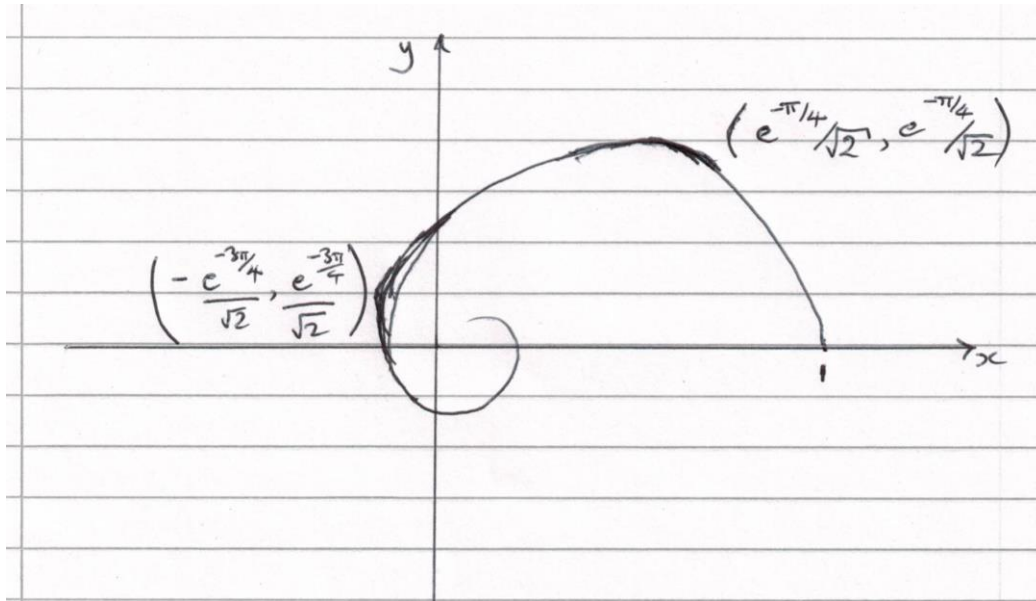 y
(e^{-π/4}/√2, e^{-π/4}/√2)
(-e^{-3π/4}/√2, e^{-3π/4}/√2)
x
1